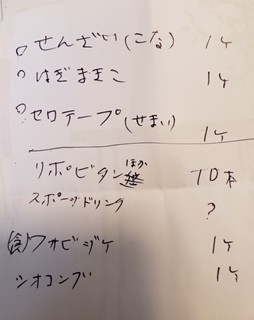 ○せんざい(こな) 1ケ
○はぎままこ 1ケ
○セロテープ(せまい) 1ケ
リポビタンほか 10本
スポーツドリンク ?
フオビヅケ 1ケ
シオコンブ 1ケ